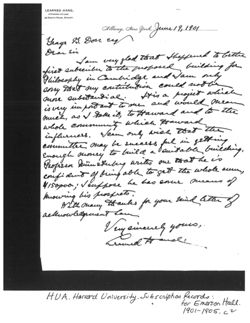 LEARNED HAND,
Albany, New York June 19, 1901
George B. Dorr esq
Dear sir
I am very glad that I happened to be the
first subscriber to the proposed building for
Philosophy in Cambridge and I am only
sorry that my contribution could not be
more substantial. It is a project which
is very important to me and would mean
much, as I take it, to Harvard and to the
whole community which Harvard
influences. I am only wish that the
committee may be successful in getting
enough money to build a suitable building.
Professor Münsterberg writes me that he is
confident of being able to get the whole sum,
$150000; I suppose he has some means of
knowing his prospects.
With many thanks for your kind letter of
acknowledgement I am
Very sincerely yours,
Learned Hand.
HUA. Harvard University. Subscription Records
for Emerson Hall.
1901-1905.